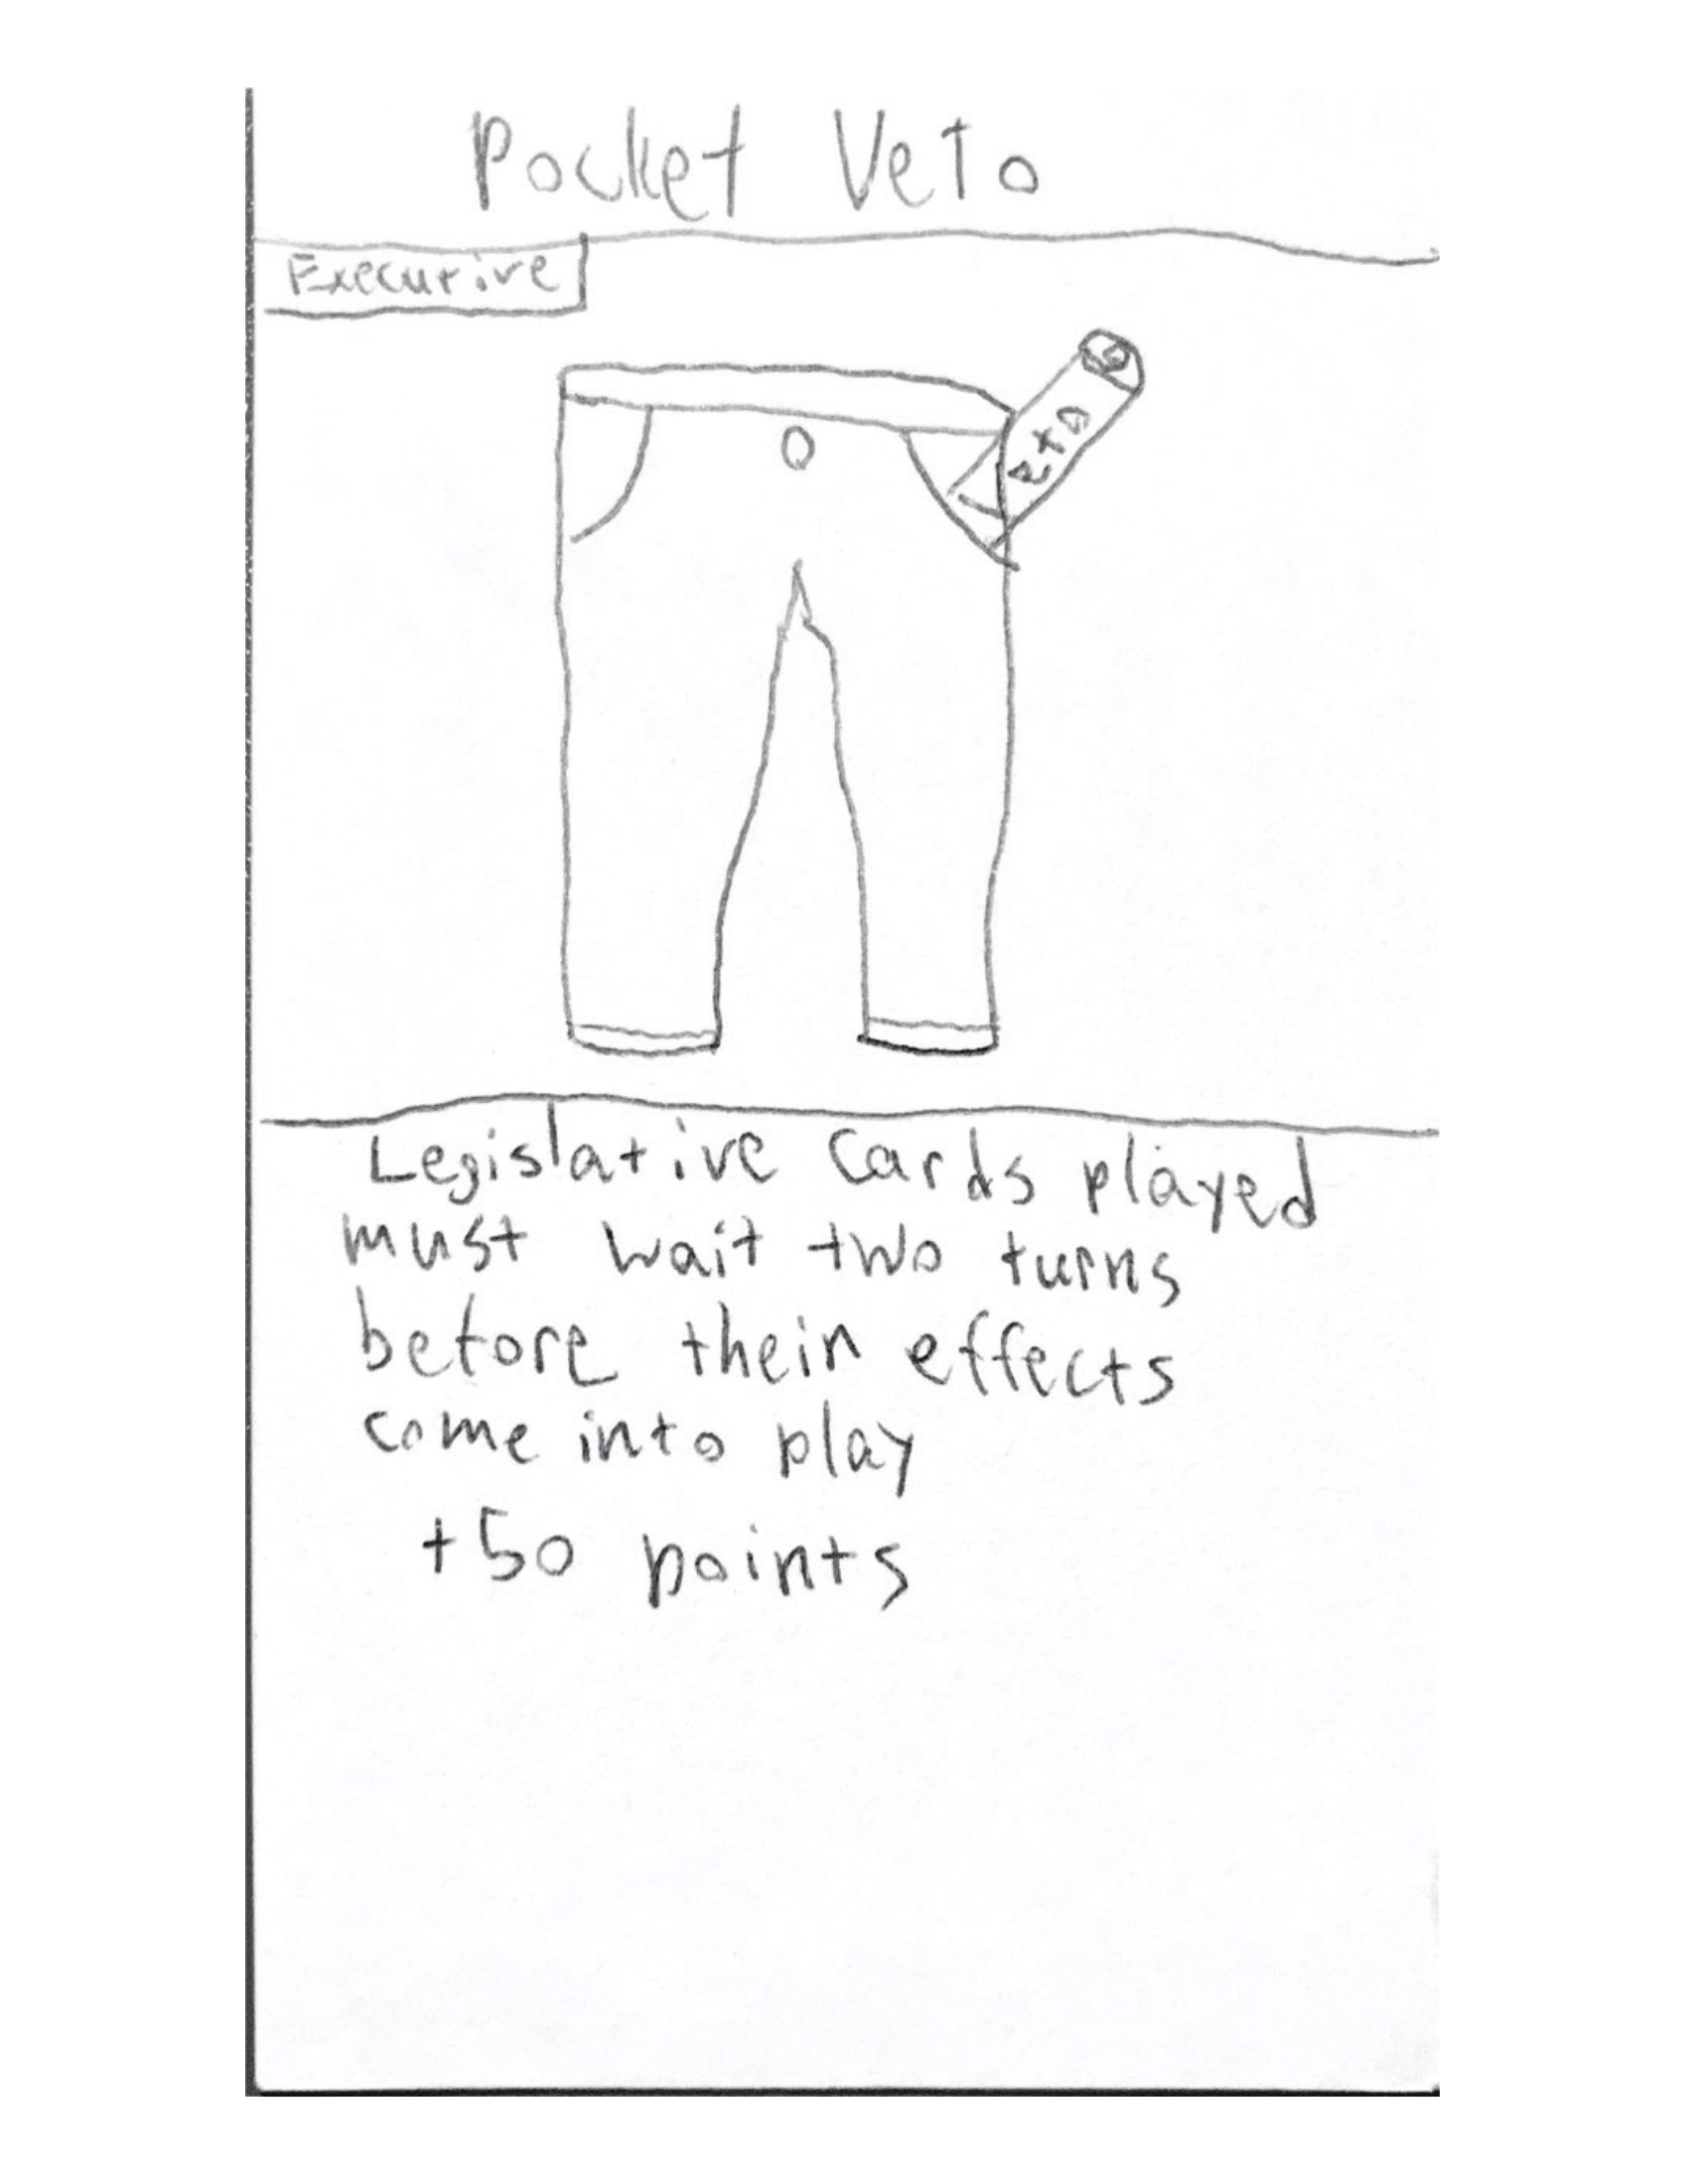 Pocket Veto
Executive
eto
Legislative Cards played
must wait two turns
before their effects
come into play
+50 points